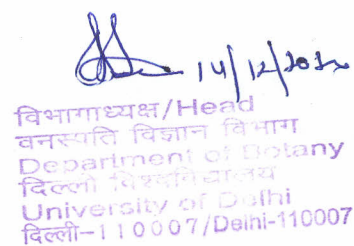 14/12/2022
विभागाध्यक्ष/Head
वनस्पति विज्ञान विभाग
Department of Botany
दिल्ली विश्वविद्यालय
University of Delhi
दिल्ली-110007/Delhi-110007